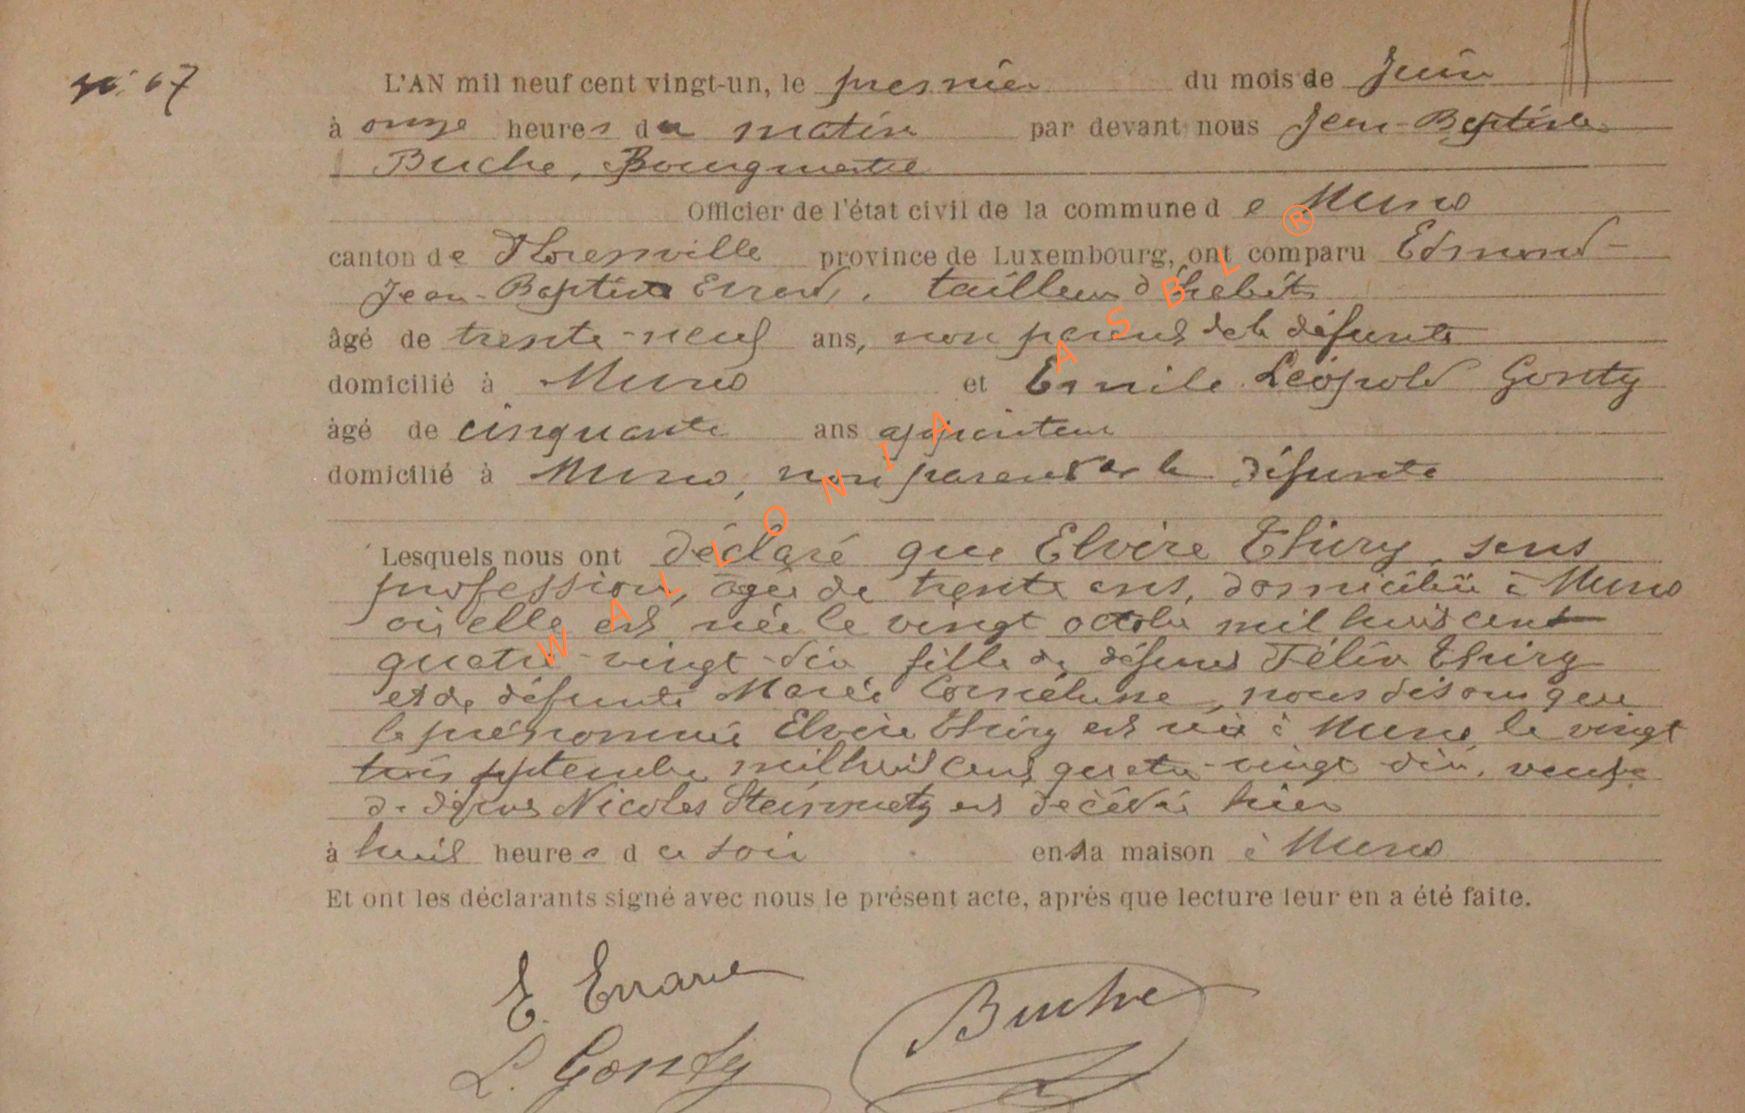 n° 67
L'AN mil neuf cent vingt-un, le premier du mois de Juin
à onze heures du matin par devant nous Jean-Baptiste
Buche, Bourgmestre
Officier de l'état civil de la commune de Muno
canton de Florenville province de Luxembourg, ont comparu Edmond-
Jean-Baptiste tailleur d'habits
âgé de trente-neuf ans, non parent de la défunte
domicilié à Muno et Emile Léopold Gonty
âgé de cinquante ans ajusteur
domicilié à Muno, non parent de la défunte
Lesquels nous ont déclaré que Elvire Thiry, sans
profession, âgée de trente ans, domiciliée à Muno
où elle est née le vingt octobre mil huit cent
quatre-vingt-dix fille de défunt Félix Thiry
et de défunte Marie nous disons que
la prénommée Elvire Thiry est née à Muno, le vingt
trois septembre mil huit cent quatre-vingt dix, veuve
de défunt Nicolas Steinmetz est décédée hier
à huit heures du soir en sa maison à Muno
Et ont les déclarants signé avec nous le présent acte, après que lecture leur en a été faite.
E. Errard
Buche
L. Gonty
WALLONIA ASBL ®